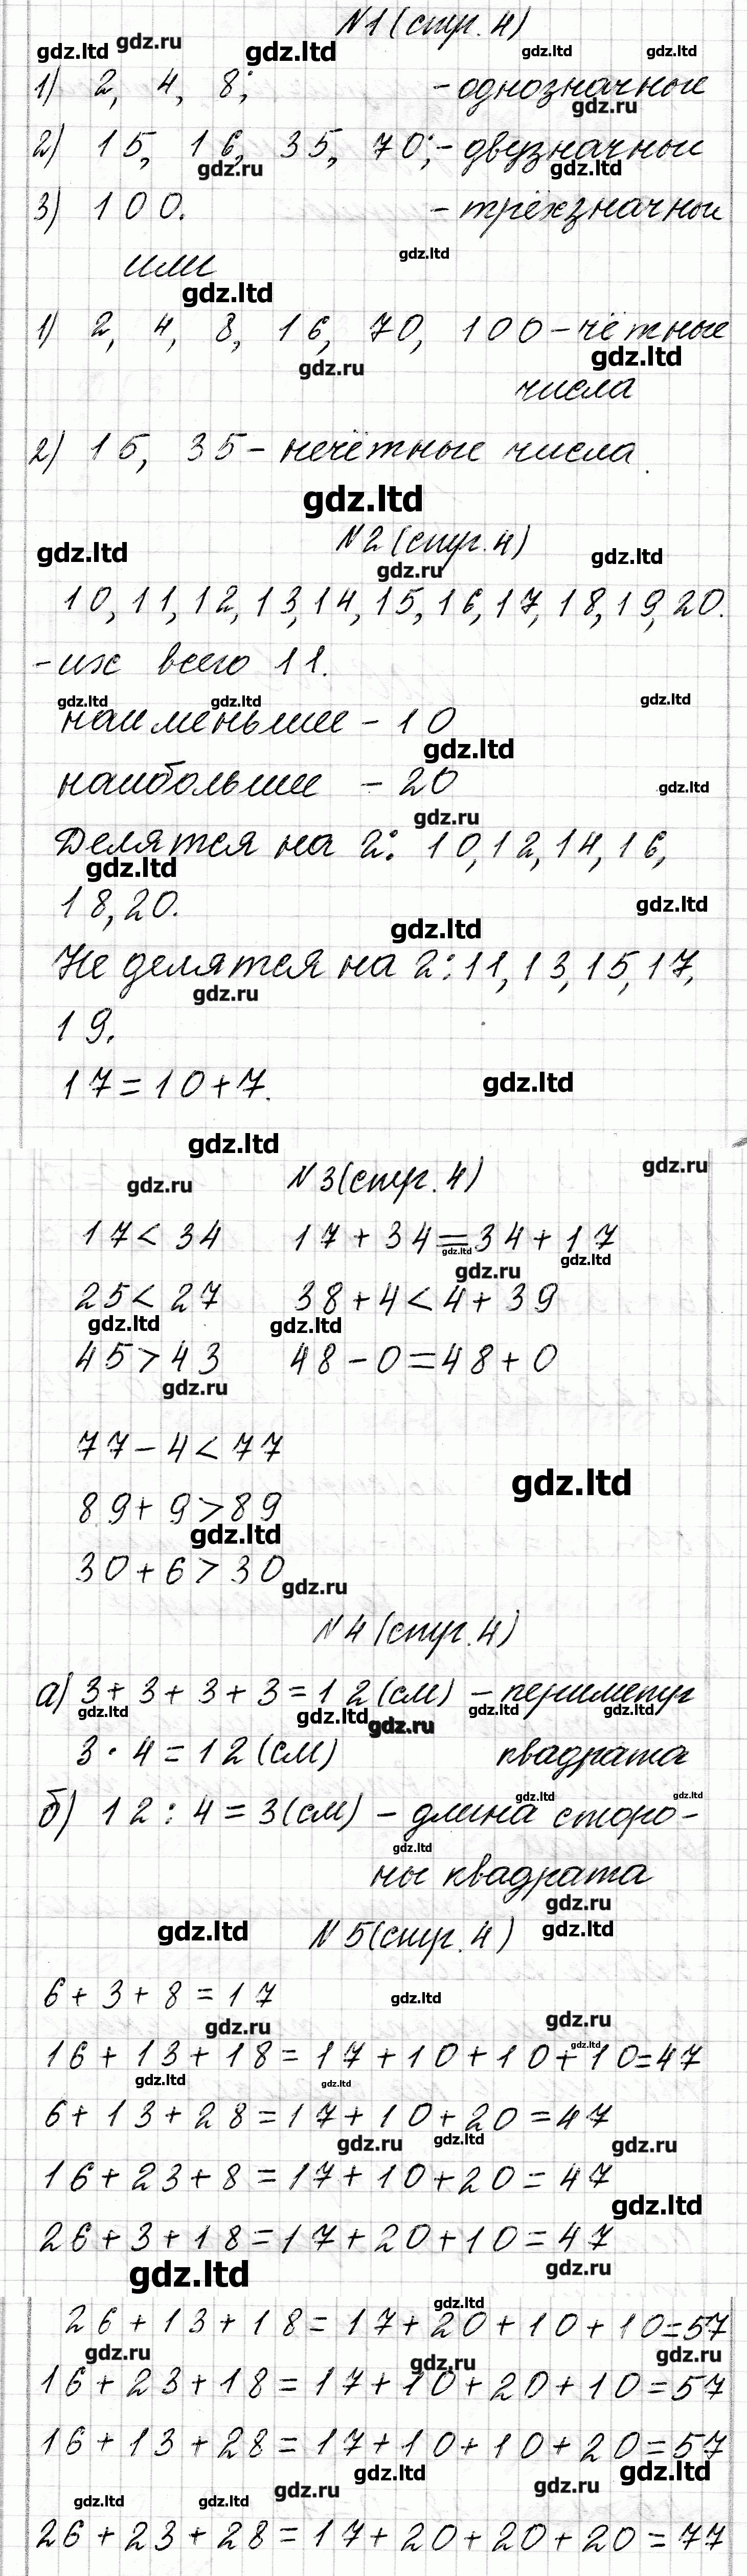 N1 (стр. 4)
gdz.ltd gdz.ru gdz.ltd gdz.ltd gdz.ltd
1) 2, 4, 8; - однозначные
gdz.ru
2) 15, 16, 35, 70; - двузначные
gdz.ru gdz.ltd
3) 100. - трёхзначные
gdz.ltd
или
gdz.ltd
1) 2, 4, 8, 16, 70, 100 - чётные
gdz.ru gdz.ltd
числа
2) 15, 35 - нечётные числа.
gdz.ltd
N2 (стр. 4)
gdz.ltd gdz.ru gdz.ltd
10, 11, 12, 13, 14, 15, 16, 17, 18, 19, 20.
- их всего 11.
gdz.ltd gdz.ltd gdz.ltd
наименьшее - 10
gdz.ltd
наибольшее - 20
gdz.ltd
gdz.ru
Делятся на 2: 10, 12, 14, 16,
gdz.ltd
18, 20.
gdz.ltd
gdz.ltd
Не делятся на 2: 11, 13, 15, 17,
gdz.ru
19.
17 = 10 + 7.
gdz.ltd
gdz.ltd
N3 (стр. 4)
gdz.ru gdz.ru
17 < 34 17 + 34 = 34 + 17
gdz.ltd gdz.ltd
gdz.ru
25 < 27 38 + 4 < 4 + 39
gdz.ltd gdz.ltd
45 > 43 48 - 0 = 48 + 0
gdz.ru
77 - 4 < 77
gdz.ltd
89 + 9 > 89
gdz.ltd
30 + 6 > 30
gdz.ru
N4 (стр. 4)
а) 3 + 3 + 3 + 3 = 12 (см) - периметр
gdz.ltd gdz.ltd gdz.ru gdz.ltd gdz.ltd
3 · 4 = 12 (см) квадрата
gdz.ltd gdz.ltd
б) 12 : 4 = 3 (см) - длина сторо-
gdz.ltd
ны квадрата
gdz.ru
gdz.ltd gdz.ltd
N5 (стр. 4)
6 + 3 + 8 = 17
gdz.ltd
gdz.ru gdz.ru
16 + 13 + 18 = 17 + 10 + 10 + 10 = 47
gdz.ltd
gdz.ltd gdz.ltd
6 + 13 + 28 = 17 + 10 + 20 = 47
gdz.ru gdz.ltd gdz.ru
16 + 23 + 8 = 17 + 10 + 20 = 47
gdz.ltd
26 + 3 + 18 = 17 + 20 + 10 = 47
gdz.ltd gdz.ru
gdz.ltd
26 + 13 + 18 = 17 + 20 + 10 + 10 = 57
gdz.ru gdz.ru gdz.ru
16 + 23 + 18 = 17 + 10 + 20 + 10 = 57
16 + 13 + 28 = 17 + 10 + 10 + 20 = 57
gdz.ltd gdz.ltd
gdz.ltd gdz.ltd gdz.ru gdz.ru
26 + 23 + 28 = 17 + 20 + 20 + 20 = 77